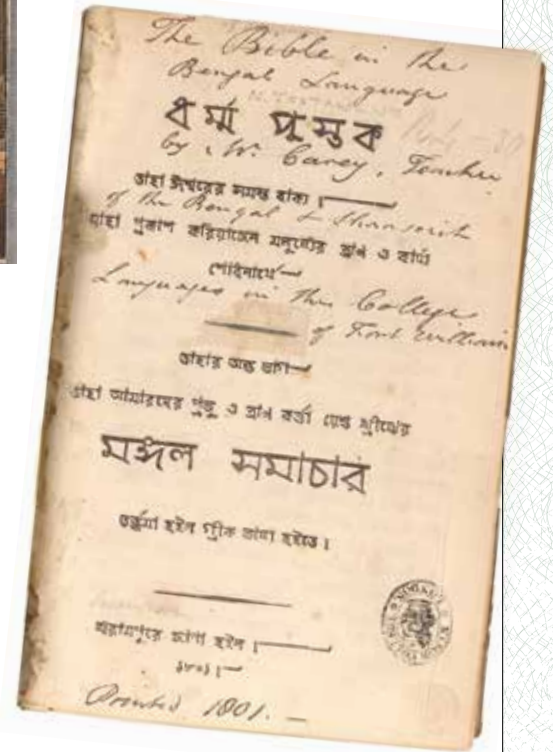 The Bible in the
Bengal Language
ধর্ম্ম পুস্তক
by W. Carey, Teacher
তাহা ঈশ্বরের সমস্ত বাক্য।
of the Bengal & Shanscrit
যাহা প্রকাশ করিয়াছেন মনুষ্যের ত্রাণ ও কার্য্য
শোধনার্থে
Languages in the College
of Fort William
তাহার অন্ত ভাগ
তাহা আমারদের প্রভু ও ত্রাণ কর্ত্তা য়েশু খ্রীষ্টের
মঙ্গল সমাচার
তর্জমা হইল গ্রীক ভাষা হইতে।
শ্রীরামপুরে ছাপা হইল।
১৮০১।
Printed 1801.